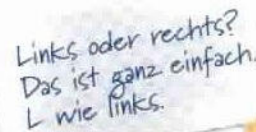 Links oder rechts?
Das ist ganz einfach.
L wie links.